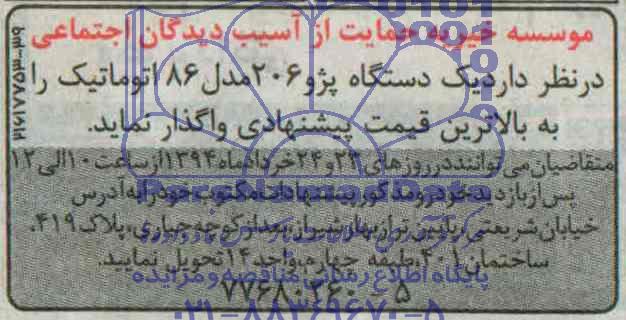 موسسه خیریه حمایت از آسیب دیدگان اجتماعی
درنظر دارد یک دستگاه پژو ۲۰۶ مدل ۸۶ اتوماتیک را
به بالاترین قیمت پیشنهادی واگذار نماید.
متقاضیان می توانند در روزهای ۲۳ و ۲۴ خرداد ماه ۱۳۹۴ از ساعت ۱۰ الی ۱۲
پس از بازدید خودرو مذکور پیشنهادات مکتوب خود را به آدرس
خیابان شریعتی، پایین تر از بهار شیراز، بعد از کوچه جباری، پلاک ۴۱۹،
ساختمان ۴۰۱، طبقه چهارم، واحد ۱۴ تحویل نمایند.
پایگاه اطلاع رسانی مناقصه و مزایده
۰۲۱-۸۸۳۴۹۶۷۰-۵